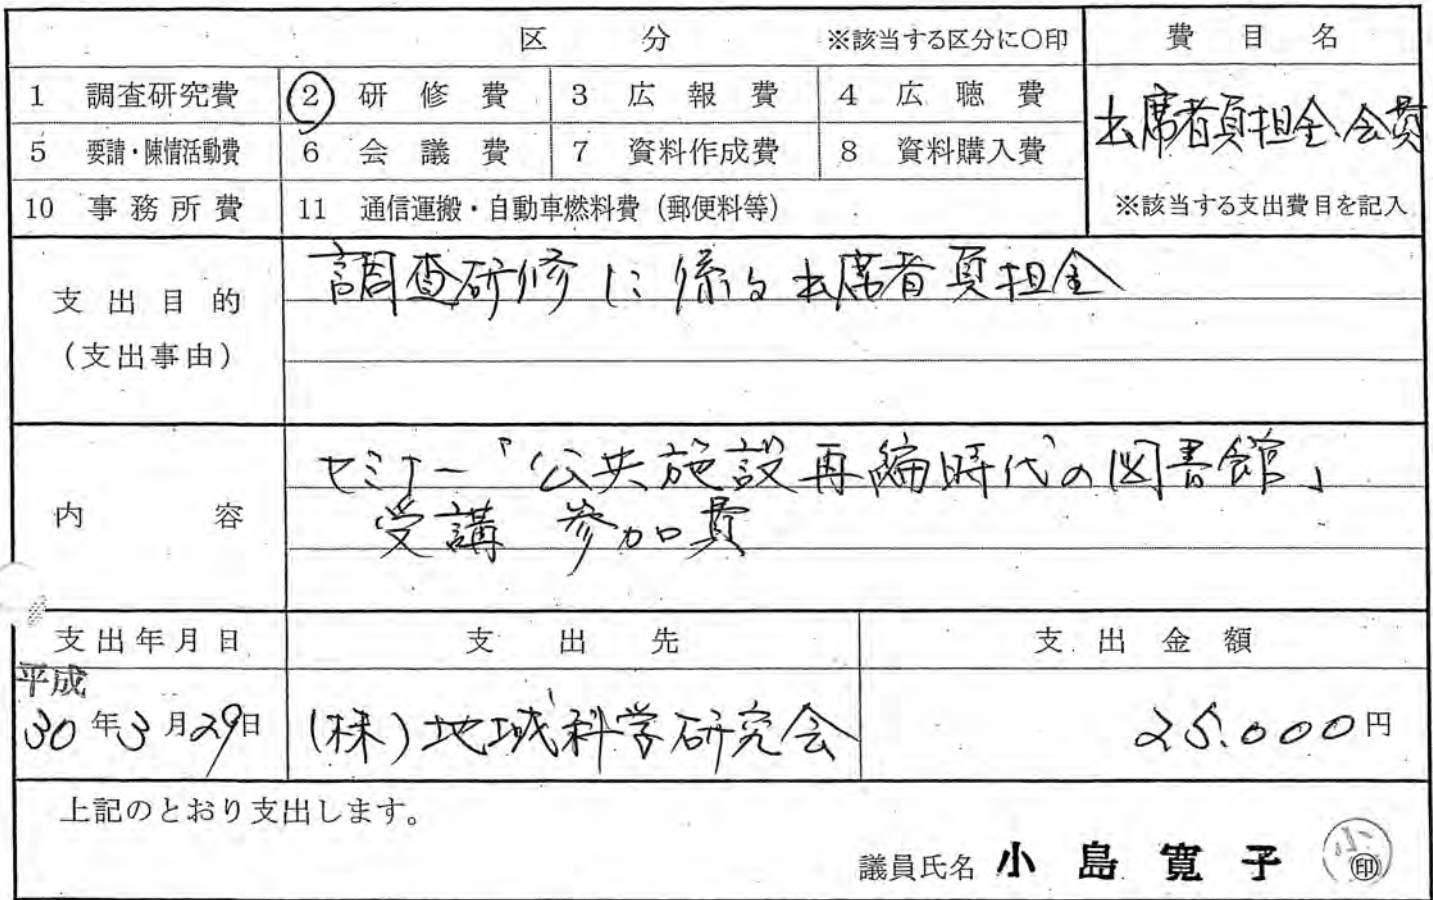 区 分 ※該当する区分に○印 費 目 名
1 調査研究費 ② 研 修 費 3 広 報 費 4 広 聴 費
出席者負担金、会費
5 要請・陳情活動費 6 会 議 費 7 資料作成費 8 資料購入費
10 事 務 所 費 11 通信運搬・自動車燃料費（郵便料等）
※該当する支出費目を記入
支 出 目 的
（支出事由）
調査研修に係る出席者負担金
内 容
セミナー「公共施設再編時代の図書館」
受講 参加費
支出年月日 支 出 先 支 出 金 額
平成
30年3月29日 (株)地域科学研究会 25.000円
上記のとおり支出します。
議員氏名 小 島 寛 子 ㊞